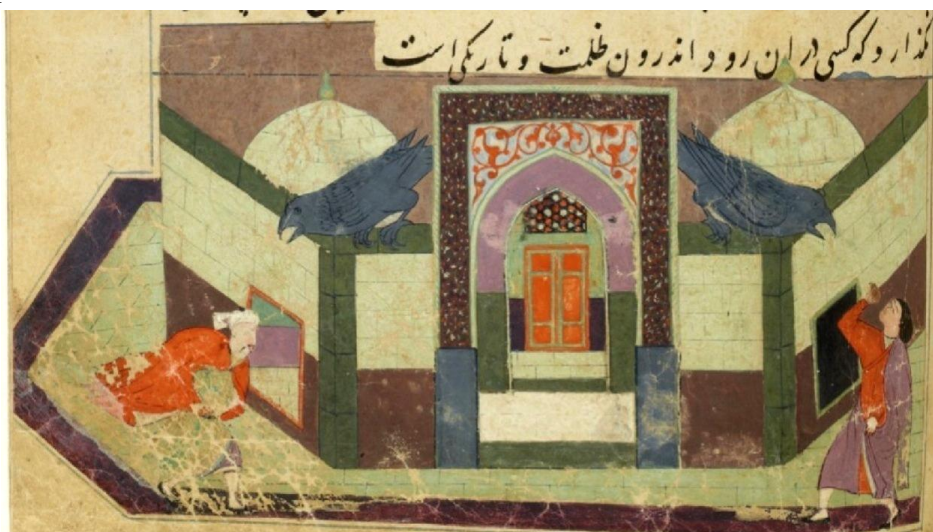 گذارد که کسی در ان رود اندرون ظلمت و تاریکی است